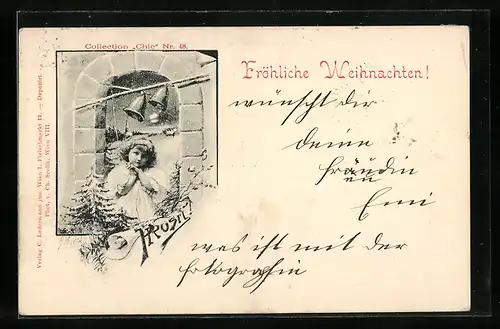 Collection „Chic" Nr. 48.
Fröhliche Weihnachten!
wünscht dir
deine
fräundin
Emi
was ist mit der
fotografin
Prosit!
Verlag C. Ledermann jun. Wien I. Fleischmarkt 12. — Deponirt.
Phot. v. Ch. Scolik, Wien VIII